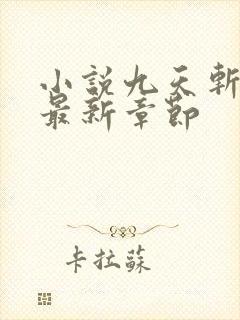 小說九天斬
最新章節
卡拉蘇